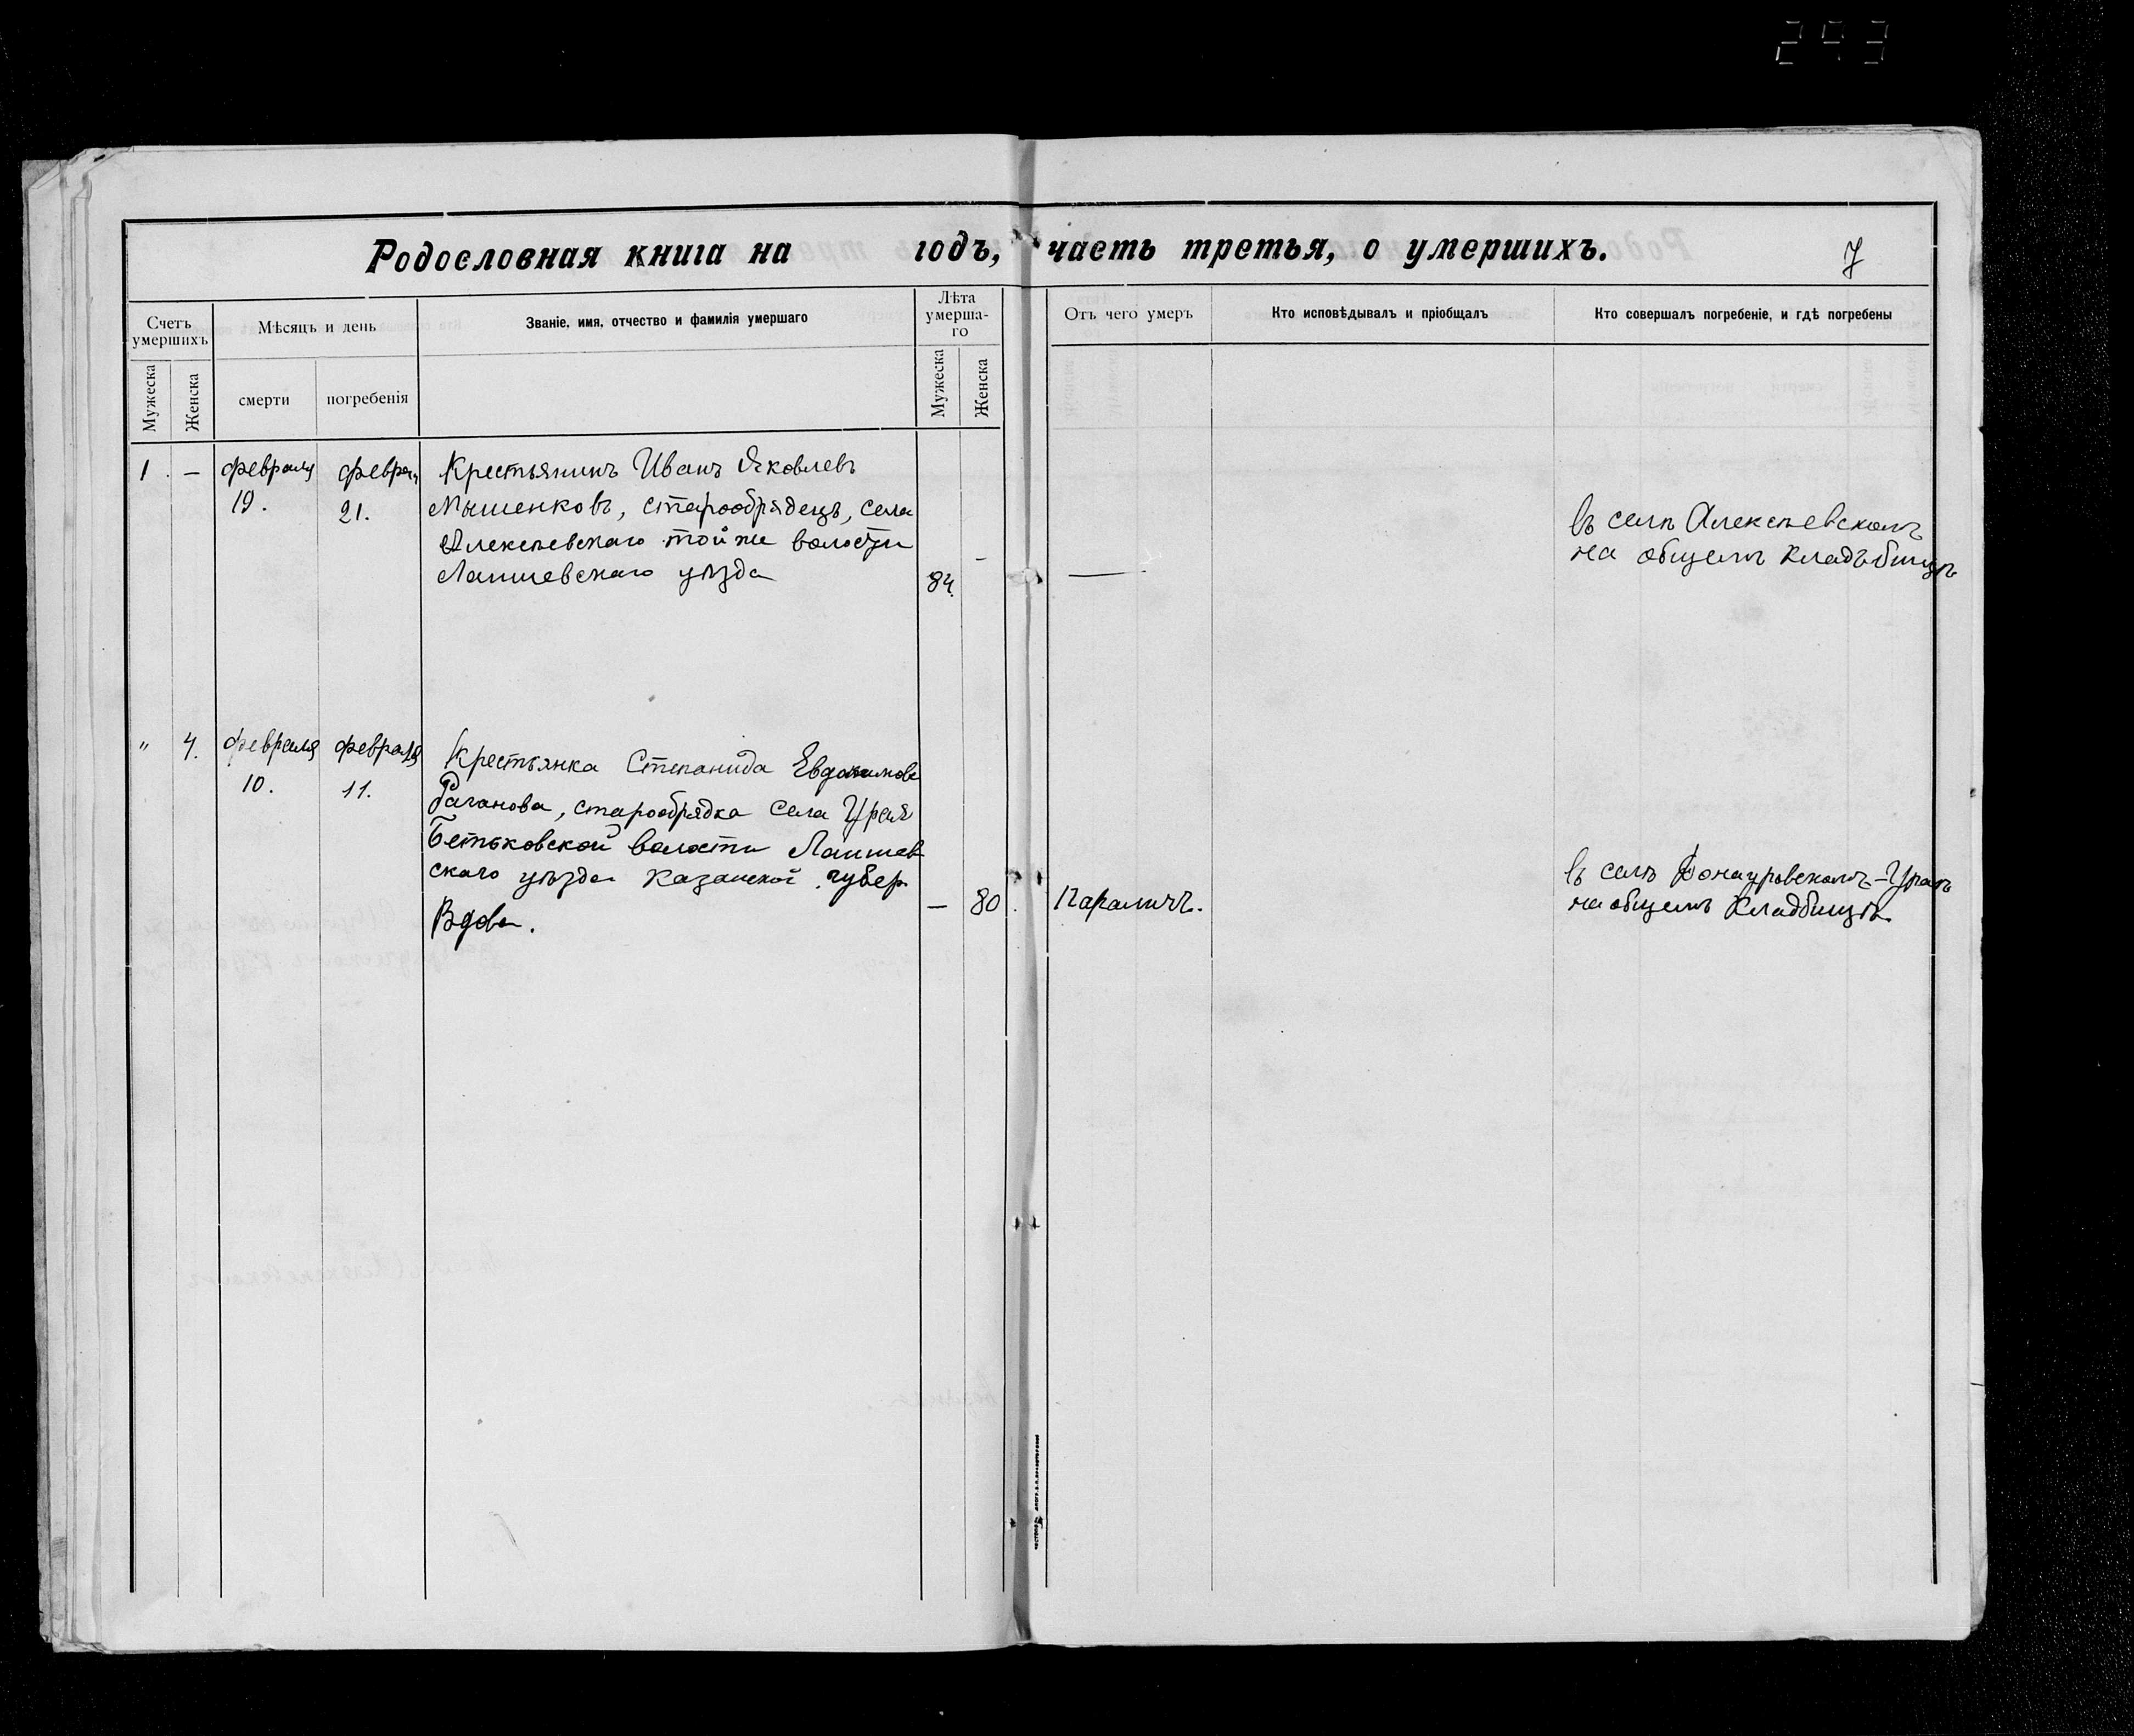 293
Родословная книга на годъ, часть третья, о умершихъ.
7
Счетъ умершихъ
Мѣсяцъ и день
Званіе, имя, отчество и фамилія умершаго
Лѣта умерша-го
Отъ чего умеръ
Кто исповѣдывалъ и пріобщалъ
Кто совершалъ погребеніе, и гдѣ погребены
Мужеска
Женска
смерти
погребенія
Мужеска
Женска
1 . — февраля феврал Крестьянинъ Иванъ Яковлевъ
19. 21. Мышенковъ, старообрядецъ, села
Алексѣевскаго той же волости
Лаишевскаго уѣзда
84. –
—
въ селѣ Алексѣевскомъ
на общемъ кладъбищѣ
" 4. февраля февраля Крестьянка Степанида Евдокимова
10. 11. Рачанова, старообрядка села Урая
Бетьковской волости Лаишев
скаго уѣзда Казанской губер.
Вдова.
— 80. Параличъ.
въ селѣ -Ураѣ
на общемъ Кладбищѣ.